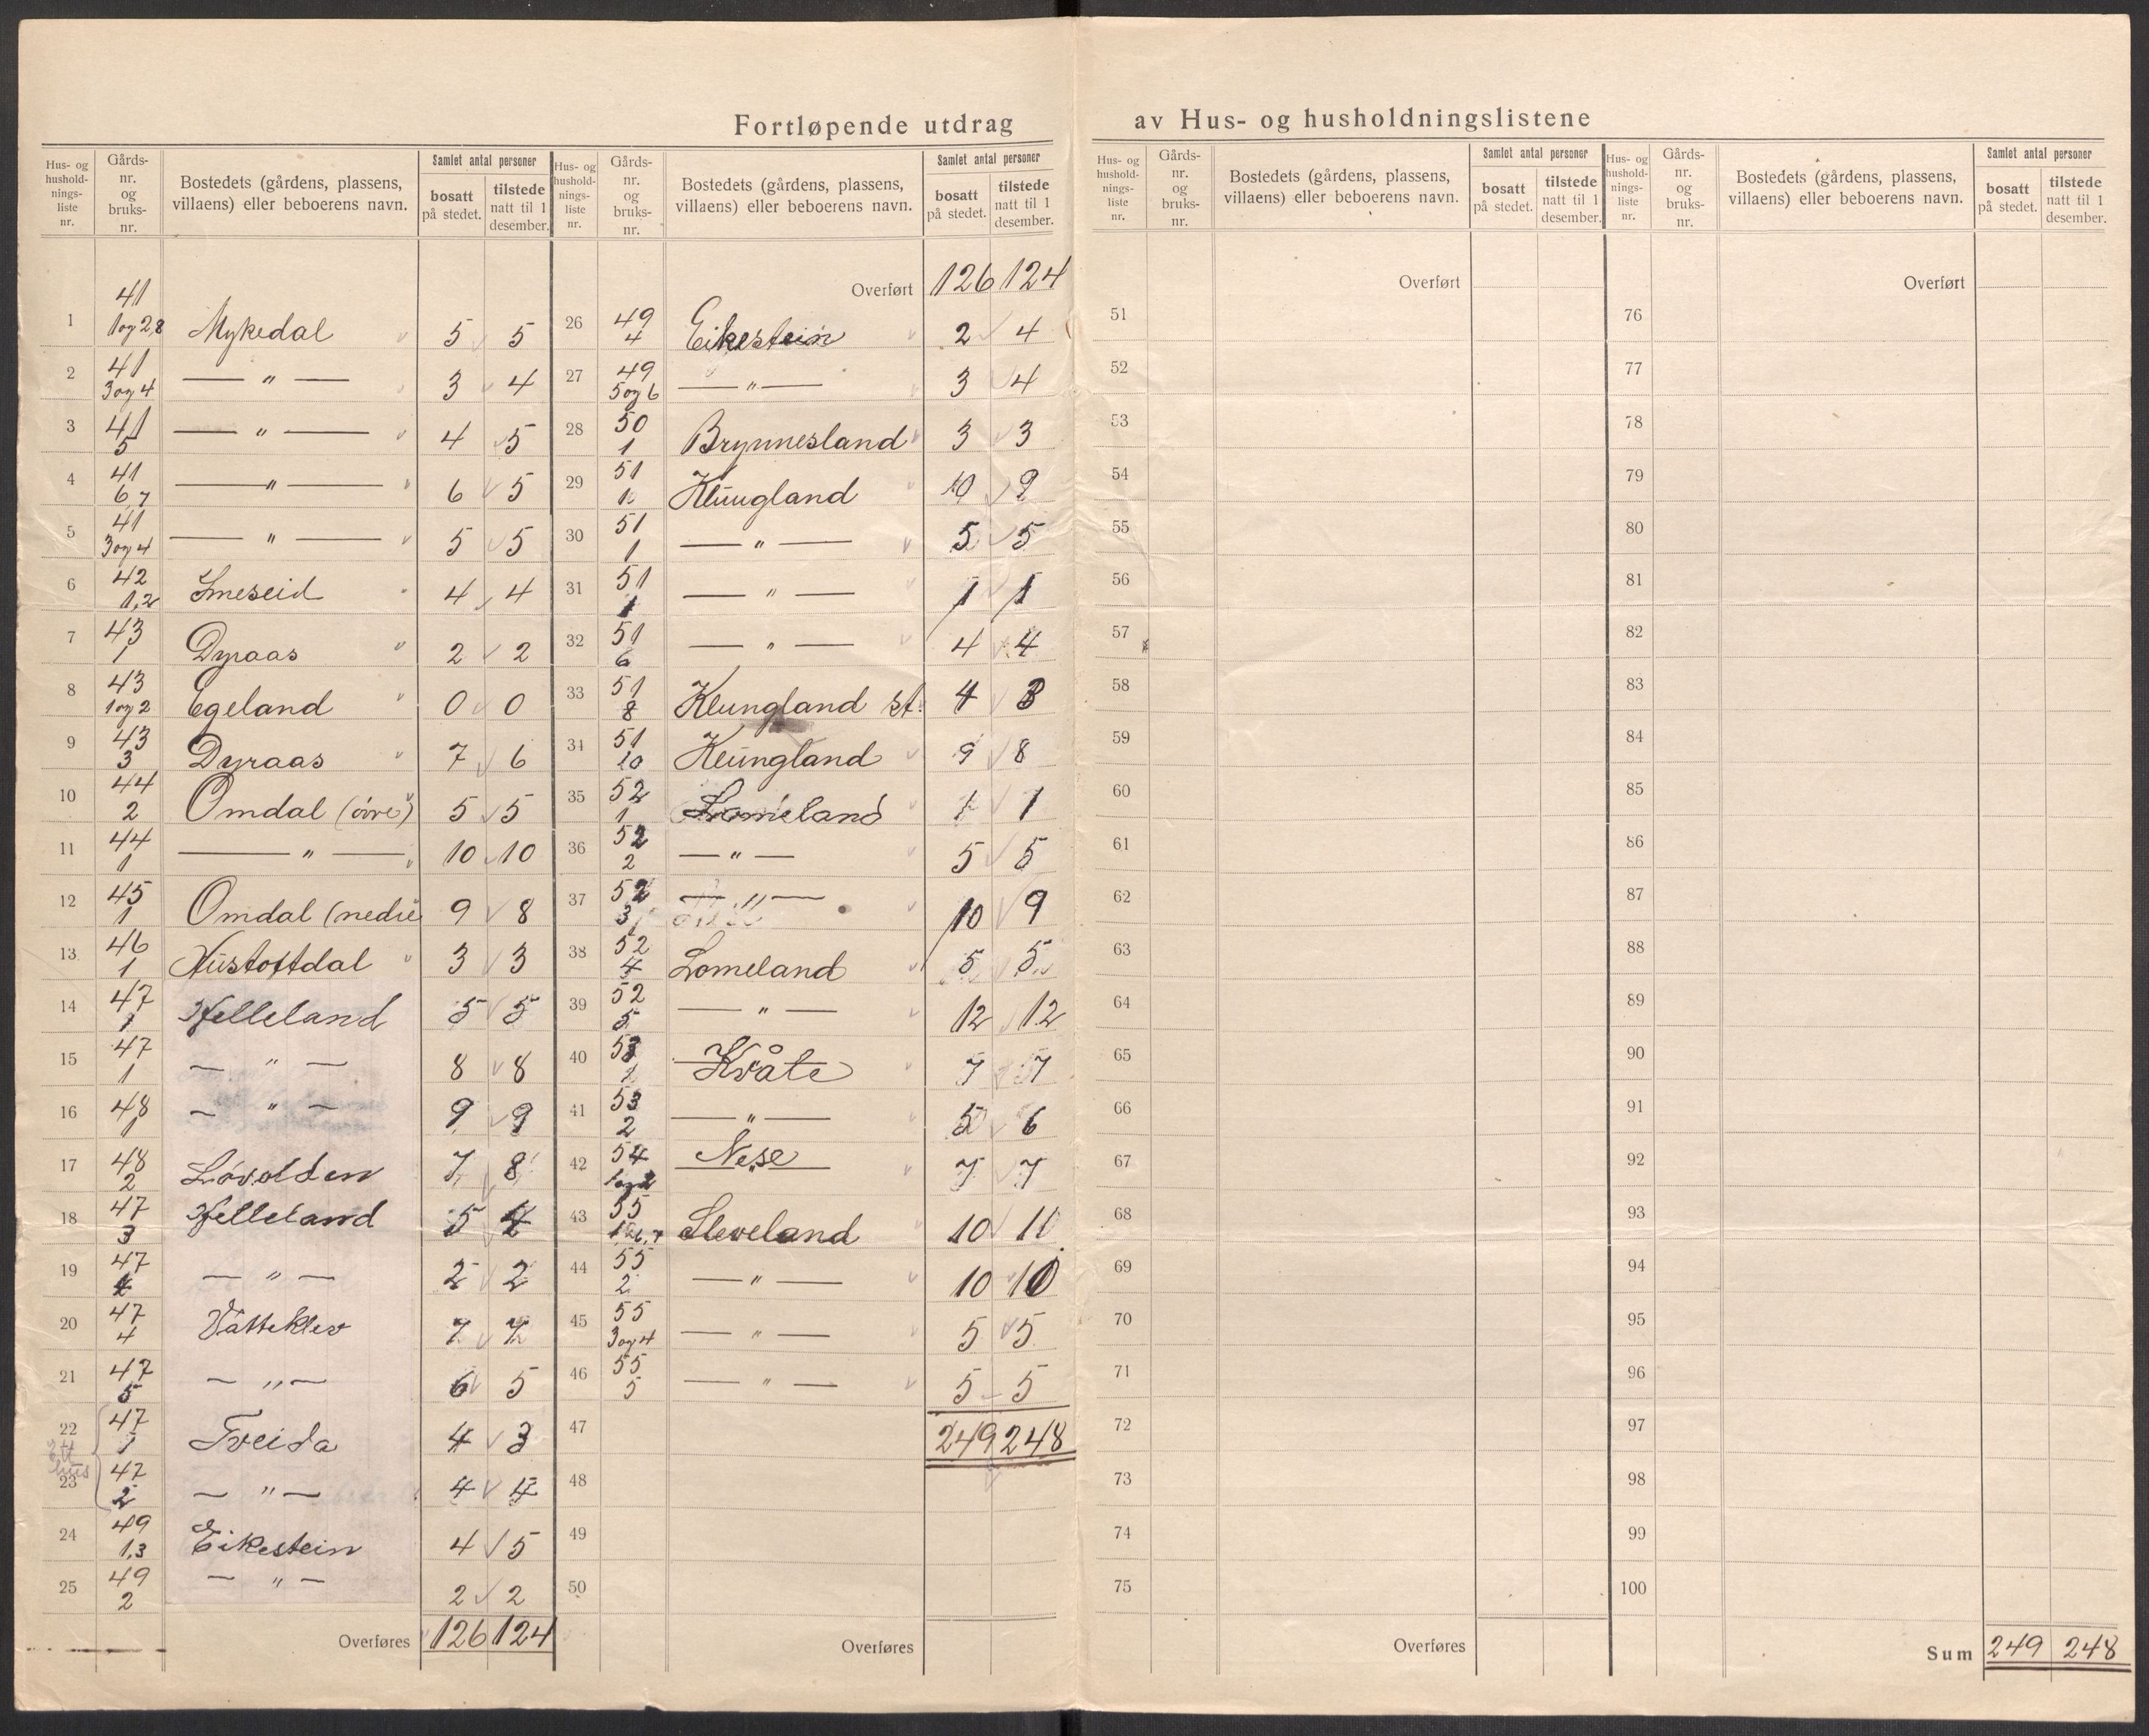 Fortløpende utdrag av Hus- og husholdningslistene
Hus- og hushold-nings-liste nr. | Gårds-nr. og bruks-nr. | Bostedets (gårdens, plassens, villaens) eller beboerens navn. | Samlet antal personer | bosatt på stedet. | tilstede natt til 1 desember.
1 | 41 1 og 2,8 | Mykedal | 5 | 5
2 | 41 3 og 4 | — " — | 3 | 4
3 | 41 5 | — " — | 4 | 5
4 | 41 6,7 | — " — | 6 | 5
5 | 41 3 og 4 | — " — | 5 | 5
6 | 42 1,2 | Imeseid | 4 | 4
7 | 43 1 | Dyraas | 2 | 2
8 | 43 1 og 2 | Egeland | 0 | 0
9 | 43 3 | Dyraas | 7 | 6
10 | 44 2 | Omdal (övre) | 5 | 5
11 | 44 1 | — " — | 10 | 10
12 | 45 1 | Omdal (nedre | 9 | 8
13 | 46 1 | Hustoftdal | 3 | 3
14 | 47 1 | Helleland | 5 | 5
15 | 47 1 | — " — | 8 | 8
16 | 48 1 | — " — | 9 | 9
17 | 48 2 | Lövolden | 7 | 8
18 | 47 3 | Helleland | 5 | 4
19 | 47 4 | — " — | 2 | 2
20 | 47 4 | Vatteklev | 7 | 7
21 | 47 5 | — " — | 6 | 5
Ett hus
22 | 47 1 | Tveida | 4 | 3
23 | 47 2 | — " — | 4 | 4
24 | 49 1,3 | Eikestein | 4 | 5
25 | 49 2 | — " — | 2 | 2
Overføres 126 124
Hus- og hushold-nings-liste nr. | Gårds-nr. og bruks-nr. | Bostedets (gårdens, plassens, villaens) eller beboerens navn. | Samlet antal personer | bosatt på stedet. | tilstede natt til 1 desember.
Overført 126 124
26 | 49 4 | Eikestein | 2 | 4
27 | 49 5 og 6 | — " — | 3 | 4
28 | 50 1 | Brynnesland | 3 | 3
29 | 51 1 | Klungland | 10 | 9
30 | 51 1 | — " — | 5 | 5
31 | 51 1 | — " — | 1 | 1
32 | 51 6 | — " — | 4 | 4
33 | 51 8 | Klungland st. | 4 | 3
34 | 51 10 | Klungland | 9 | 8
35 | 52 1 | Lomeland | 1 | 1
36 | 52 2 | — " — | 5 | 5
37 | 52 3 | — " — | 10 | 9
38 | 52 4 | Lomeland | 5 | 5
39 | 52 5 | — " — | 12 | 12
40 | 53 1 | Kvåle | 7 | 7
41 | 53 2 | — " — | 5 | 6
42 | 54 1 og 2 | Nese | 7 | 7
43 | 55 | Sleveland | 10 | 10
44 | 55 2 | — " — | 10 | 10
45 | 55 3 og 4 | — " — | 5 | 5
46 | 55 5 | — " — | 5 | 5
47 | 249 248
48
49
50
Overføres
Hus- og hushold-nings-liste nr. | Gårds-nr. og bruks-nr. | Bostedets (gårdens, plassens, villaens) eller beboerens navn. | Samlet antal personer | bosatt på stedet. | tilstede natt til 1 desember.
Overført
51
52
53
54
55
56
57
58
59
60
61
62
63
64
65
66
67
68
69
70
71
72
73
74
75
Overføres
Hus- og hushold-nings-liste nr. | Gårds-nr. og bruks-nr. | Bostedets (gårdens, plassens, villaens) eller beboerens navn. | Samlet antal personer | bosatt på stedet. | tilstede natt til 1 desember.
Overført
76
77
78
79
80
81
82
83
84
85
86
87
88
89
90
91
92
93
94
95
96
97
98
99
100
Sum 249 248